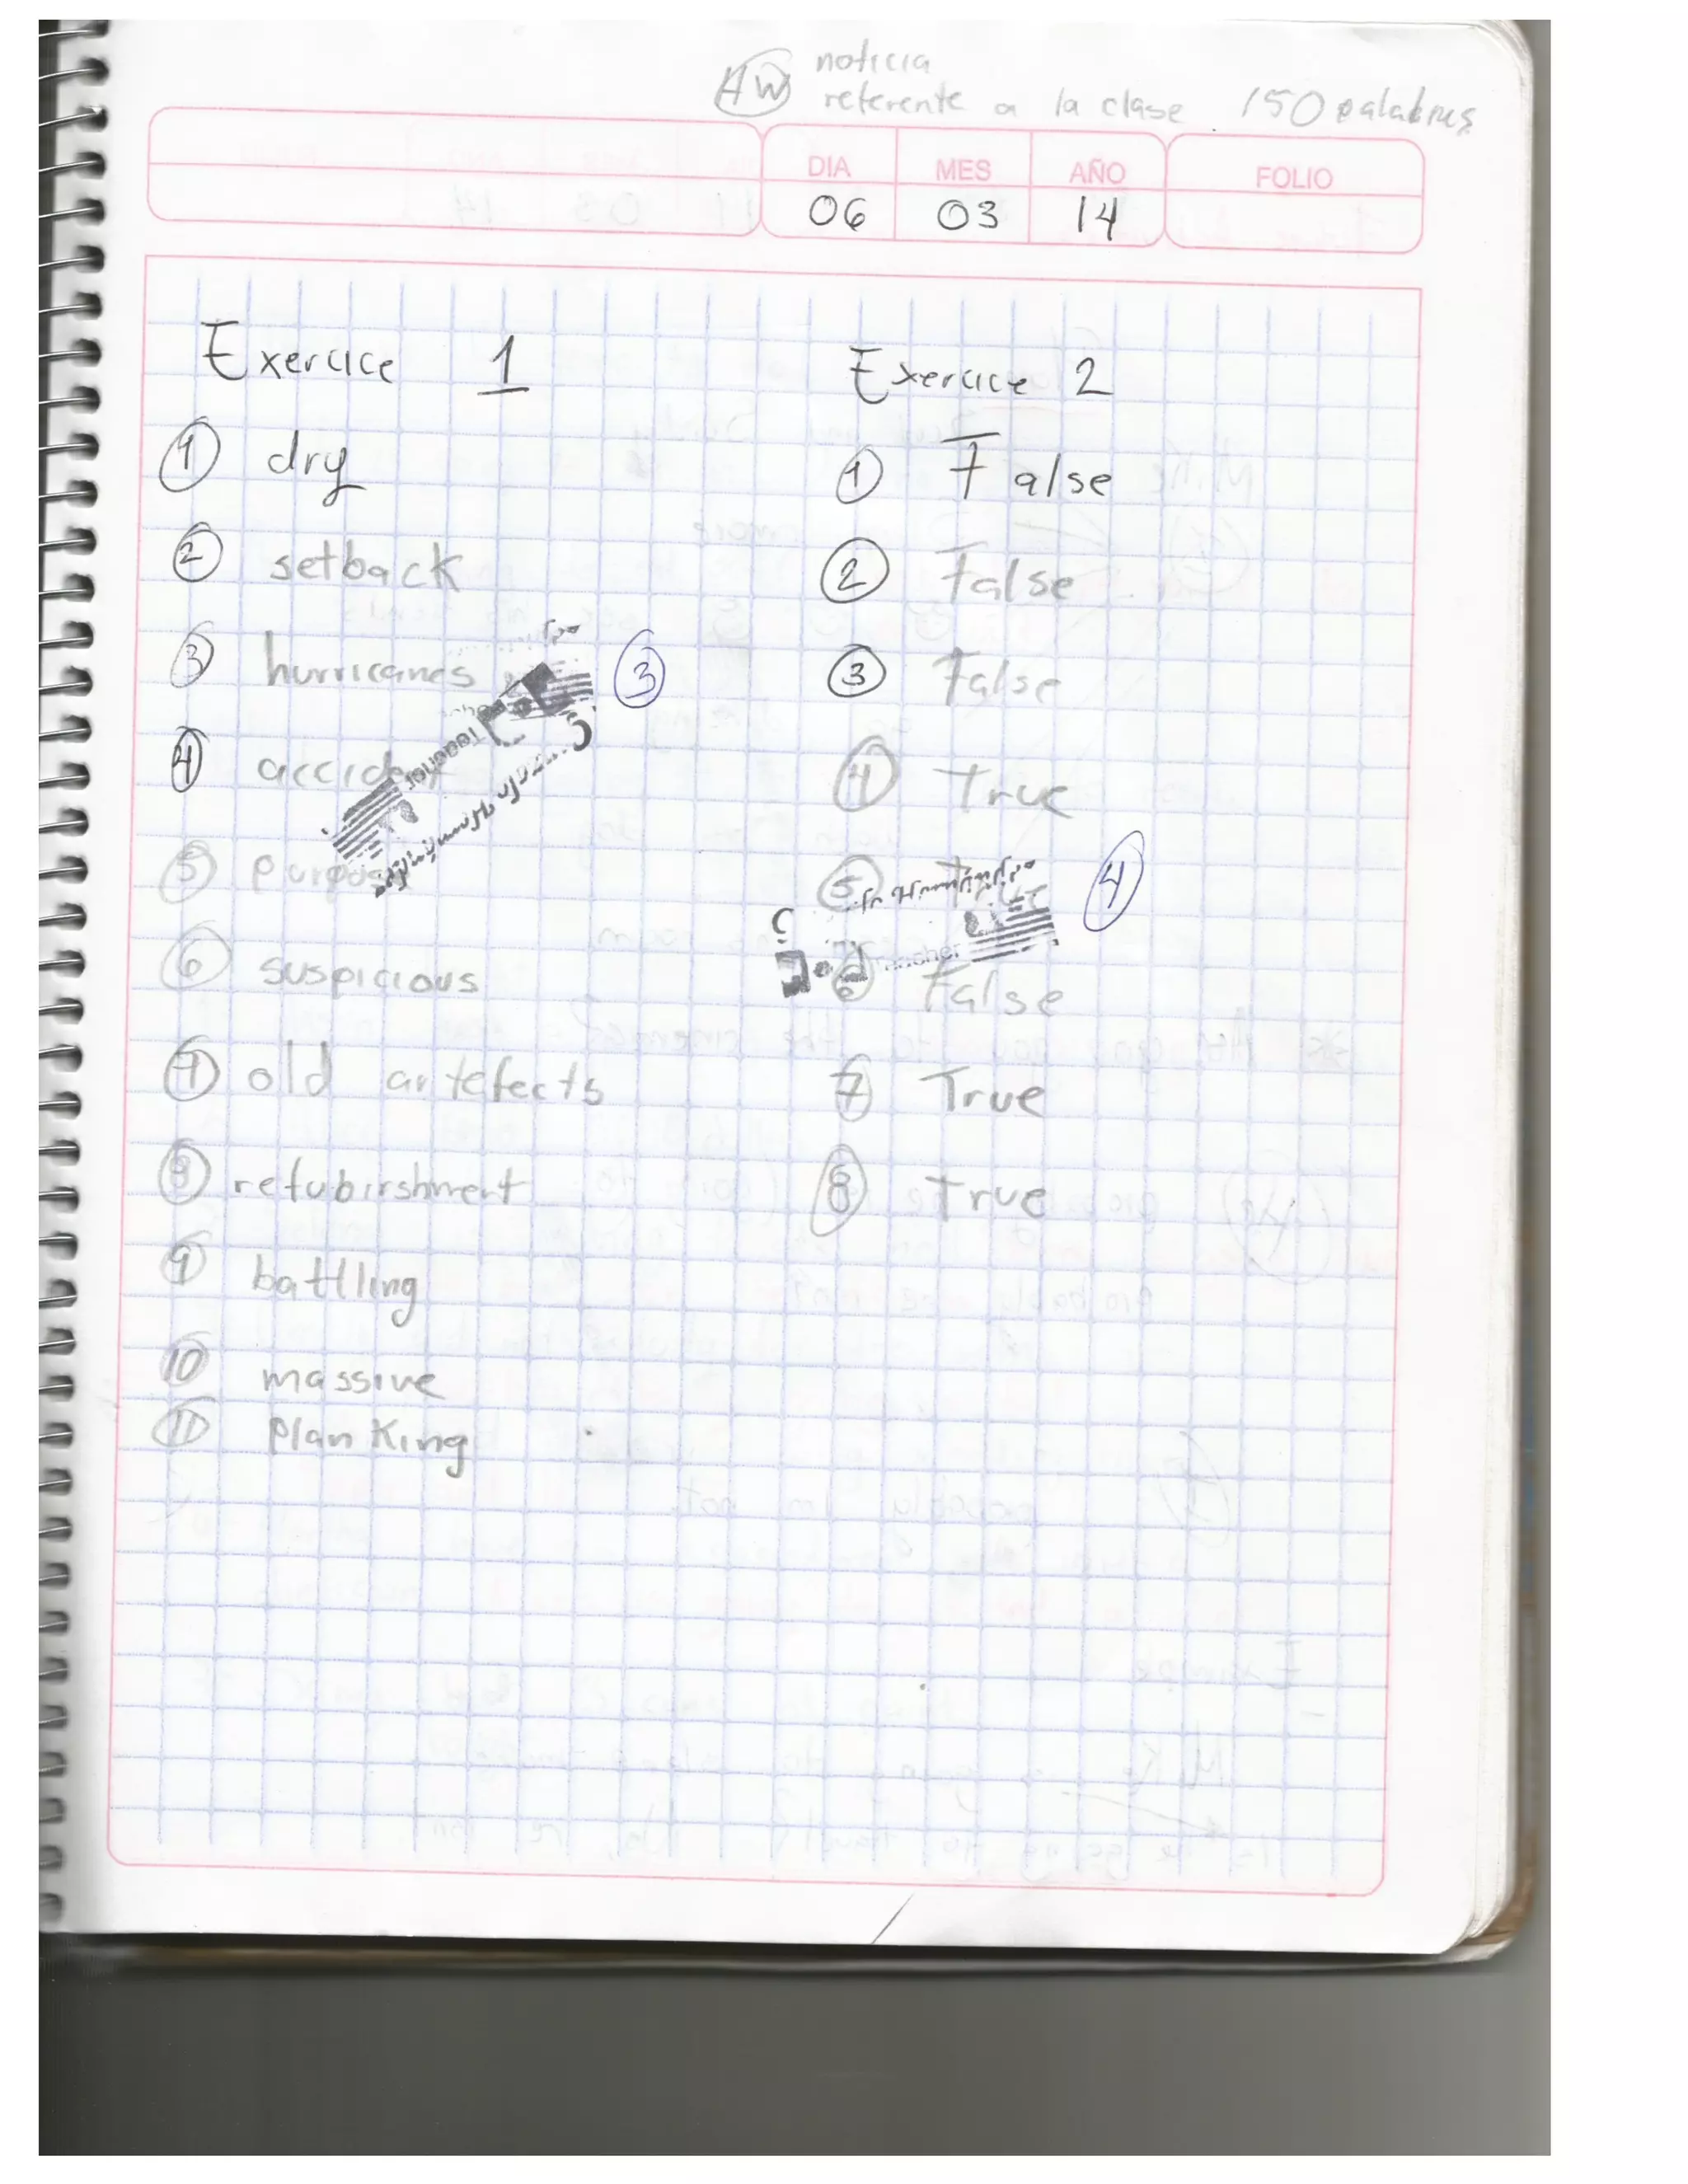 HW noticia
referente a la clase 150 palabras
DIA MES AÑO FOLIO
06 03 14
Exercice 1
1 dry
2 setback
3 hurricanes
3
4
5
6 suspicious
7 old artefects
8 refubirshment
9 battling
10 massive
11 planking
Exercice 2
1 False
2 False
3 False
4 True
5
4
6 False
7 True
8 True